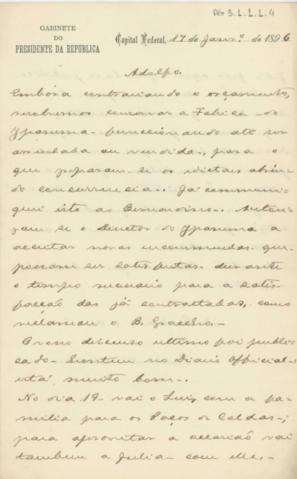 PdeM 3.1.1.4
GABINETE
DO
PRESIDENTE DA REPUBLICA
Capital Federal, 17 de Janrº. de 1896
Adolpho.
Embora contrariando o orçamento,
resolvemos conservar a Fabrica do
Ypanema funccionando até ser
arrendada ou vendida, para o
que preparam-se os editaes abrin-
do concurrencia. Já communi-
quei isto ao Bernardino. Autori-
sou-se o Director do Ypanema a
acceitar novas encommendas que
possam ser satisfeitas durante
o tempo necessario para a satis-
facção das já contractadas, como
reclamou o B.
O seu discurso ultimo foi publica-
do hontem no Diario Official
está muito bom.
No dia 19 vai o Luis com a fa-
milia para os Poços de Caldas;
para aproveitar a occasião vai
tambem a Julia com elle,